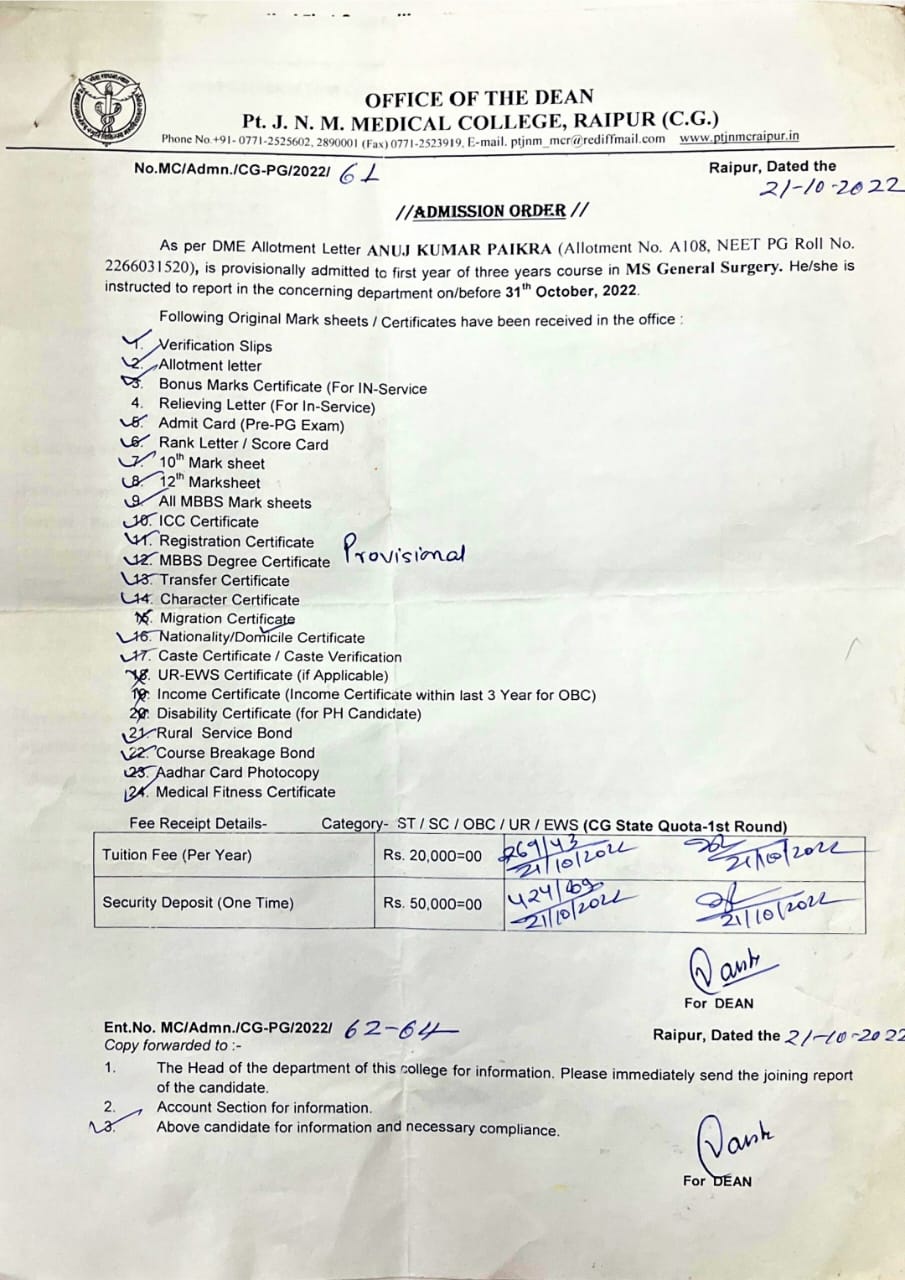 OFFICE OF THE DEAN
Pt. J. N. M. MEDICAL COLLEGE, RAIPUR (C.G.)
Phone No.+91- 0771-2525602, 2890001 (Fax) 0771-2523919, E-mail. ptjnm_mcr@rediffmail.com www.ptjnmcraipur.in
No.MC/Admn./CG-PG/2022/ 61
Raipur, Dated the
21-10-2022
//ADMISSION ORDER //
As per DME Allotment Letter ANUJ KUMAR PAIKRA (Allotment No. A108, NEET PG Roll No.
2266031520), is provisionally admitted to first year of three years course in MS General Surgery. He/she is
instructed to report in the concerning department on/before 31th October, 2022.
Following Original Mark sheets / Certificates have been received in the office :
1. Verification Slips
2. Allotment letter
3. Bonus Marks Certificate (For IN-Service
4. Relieving Letter (For In-Service)
5. Admit Card (Pre-PG Exam)
6. Rank Letter / Score Card
7. 10th Mark sheet
8. 12th Marksheet
9. All MBBS Mark sheets
10. ICC Certificate
11. Registration Certificate
12. MBBS Degree Certificate Provisional
13. Transfer Certificate
14. Character Certificate
15. Migration Certificate
16. Nationality/Domicile Certificate
17. Caste Certificate / Caste Verification
18. UR-EWS Certificate (if Applicable)
19. Income Certificate (Income Certificate within last 3 Year for OBC)
20. Disability Certificate (for PH Candidate)
21. Rural Service Bond
22. Course Breakage Bond
23. Aadhar Card Photocopy
24. Medical Fitness Certificate
Fee Receipt Details- Category- ST / SC / OBC / UR / EWS (CG State Quota-1st Round)
Tuition Fee (Per Year) Rs. 20,000=00 269/43
21/10/2022 21/10/2022
Security Deposit (One Time) Rs. 50,000=00 424/69
21/10/2022 21/10/2022
For DEAN
Ent.No. MC/Admn./CG-PG/2022/ 62-64
Raipur, Dated the 21-10-2022
Copy forwarded to :-
1. The Head of the department of this college for information. Please immediately send the joining report
of the candidate.
2. Account Section for information.
3. Above candidate for information and necessary compliance.
For DEAN